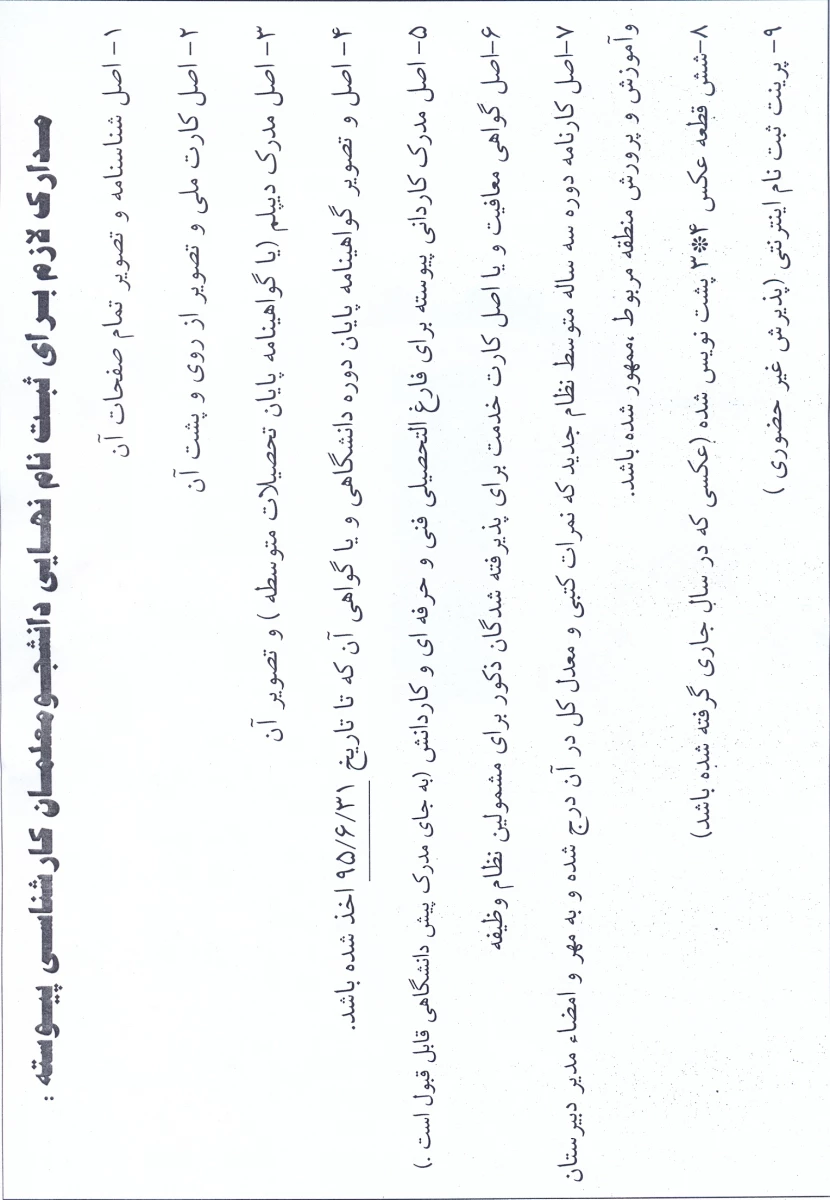 مدارک لازم برای ثبت نام نهایی دانشجومعلمان کارشناسی پیوسته :
۱- اصل شناسنامه و تصویر تمام صفحات آن
۲- اصل کارت ملی و تصویر از روی و پشت آن
۳- اصل مدرک دیپلم (یا گواهینامه پایان تحصیلات متوسطه ) و تصویر آن
۴- اصل و تصویر گواهینامه پایان دوره دانشگاهی و یا گواهی آن که تا تاریخ ۹۵/۶/۳۱ اخذ شده باشد.
۵- اصل مدرک کاردانی پیوسته برای فارغ التحصیلی فنی و حرفه ای و کاردانش (به جای مدرک پیش دانشگاهی قابل قبول است .)
۶-اصل گواهی معافیت و یا اصل کارت خدمت برای پذیرفته شدگان ذکور برای مشمولین نظام وظیفه
۷-اصل کارنامه دوره سه ساله متوسط نظام جدید که نمرات کتبی و معدل کل در آن درج شده و به مهر و امضاء مدیر دبیرستان
وآموزش و پرورش منطقه مربوط ،ممهور شده باشد.
۸-شش قطعه عکس ۴*۳ پشت نویس شده (عکسی که در سال جاری گرفته شده باشد)
۹- پرینت ثبت نام اینترنتی (پذیرش غیر حضوری )